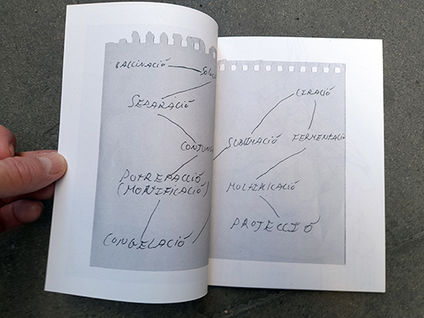 CALCINACIÓ
SEPARACIÓ
CONJUN
PUTREFACCIÓ
(MORTIFICACIÓ)
CONGELACIÓ
CIBACIÓ
SUBLIMACIÓ FERMENTACIÓ
PROJECCIÓ